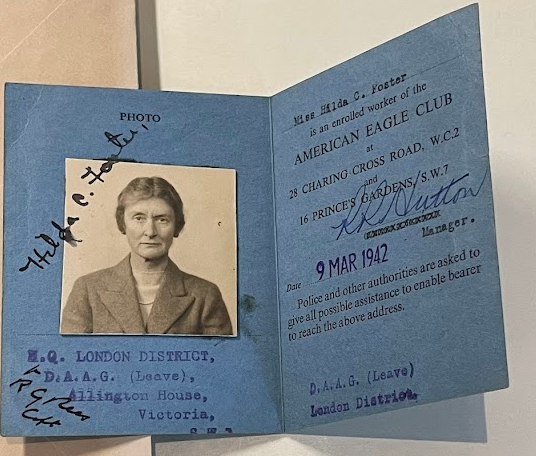 PHOTO
Hilda C. Foster,
H.Q. LONDON DISTRICT,
D.A.A.G. (Leave),
Allington House,
Victoria,
S.W.1
Miss Hilda C. Foster
is an enrolled worker of the
AMERICAN EAGLE CLUB
at
28 CHARING CROSS ROAD, W.C.2
and
16 PRINCE'S GARDENS, S.W.7
Sutton
Manager.
Date 9 MAR 1942
Police and other authorities are asked to
give all possible assistance to enable bearer
to reach the above address.
D.A.A.G. (Leave)
London District.